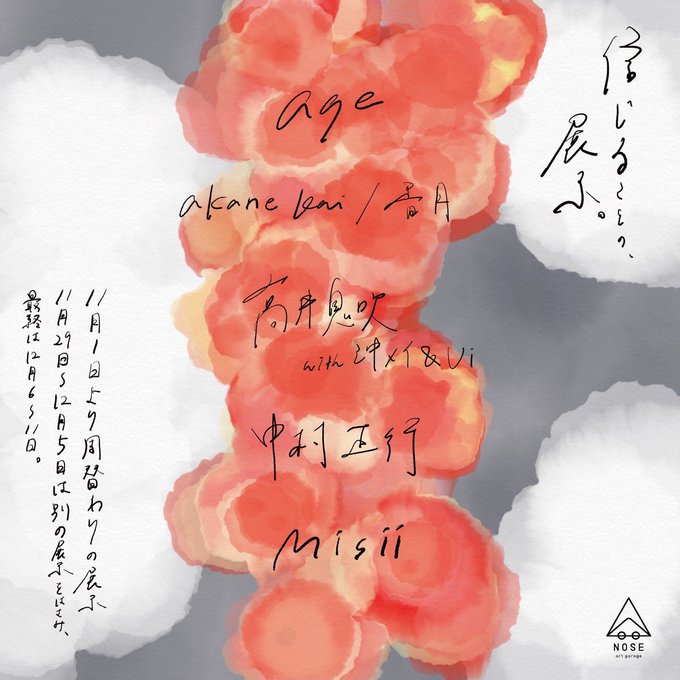 信じることの、
展示。
age
akane kai / 香月
高井息吹
with 沖メイ & Vi
中村正行
Misii
11月1日より周替わりの展示
11月29日〜12月5日は別の展示をはさみ、
最終は12月6〜11日。
NOSE
art garage